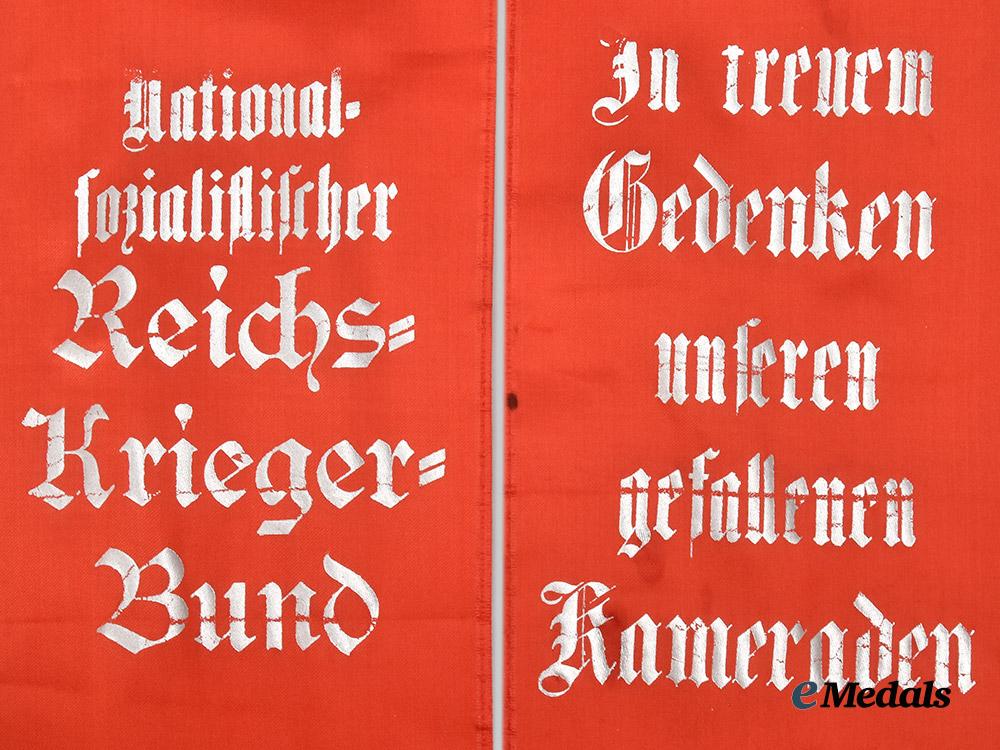 National-
sozialistischer
Reichs-
Krieger-
Bund
In treuem
Gedenken
unseren
gefallenen
Kameraden
eMedals